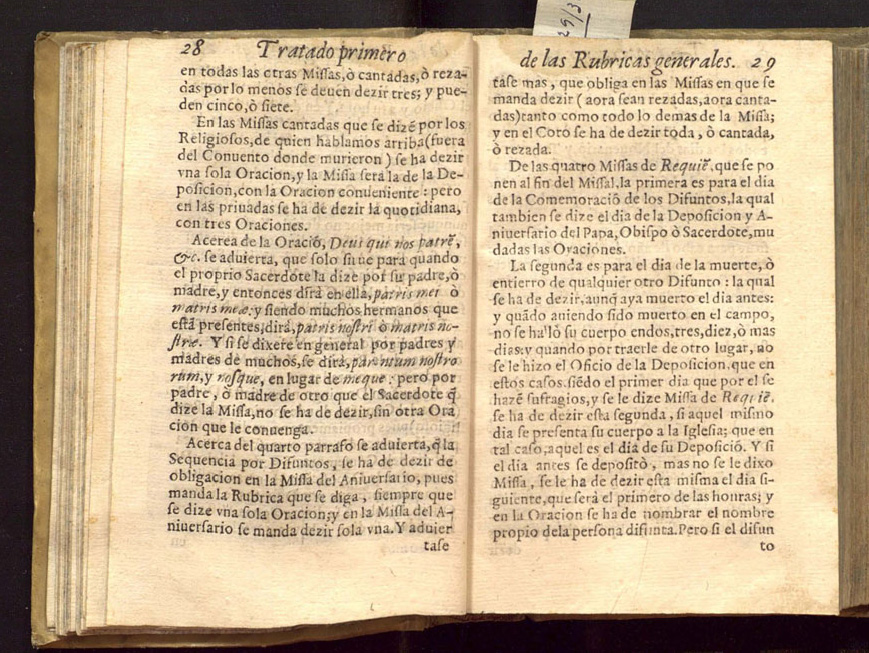 29/3
28 Tratado primero
en todas las otras Missas, ò cantadas, ò reza-
das por lo menos se deuen dezir tres; y pue-
den cinco, ò siete.
En las Missas cantadas que se dizẽ por los
Religiosos, de quien hablamos arriba (fuera
del Conuento donde murieron) se ha dezir
vna sola Oracion, y la Missa será la de la De-
posicion, con la Oracion conueniente: pero
en las priuadas se ha de dezir la quotidiana,
con tres Oraciones.
Acerca de la Oració, Deus qui nos patrẽ,
&c. se aduierta, que solo sirue para quando
el proprio Sacerdote la dize por su padre, ò
madre, y entonces dirà en ella, patris mei ò
matris meæ: y siendo muchos hermanos que
està presentes, dirà, patris nostri ò matris no-
stræ. Y si se dixere en general por padres y
madres de muchos, se dirà, parentum nostro
rum, y nosque, en lugar de meque: pero por
padre, ò madre de otro que el Sacerdote q̃
dize la Missa, no se ha de dezir, sin otra Ora
cion que le conuenga.
Acerca del quarto parrafo se aduierta, q̃ la
Sequencia por Difuntos, se ha de dezir de
obligacion en la Missa del Aniuersario, pues
manda la Rubrica que se diga, siempre que
se dize vna sola Oracion; y en la Missa del A-
niuersario se manda dezir sola vna. Y aduier
tase
de las Rubricas generales. 29
tase mas, que obliga en las Missas en que se
manda dezir (aora sean rezadas, aora canta-
das) tanto como todo lo demas de la Missa;
y en el Coro se ha de dezir toda, ò cantada,
ò rezada.
De las quatro Missas de Requiẽ, que se po
nen al fin del Missal, la primera es para el dia
de la Comemoració de los Difuntos, la qual
tambien se dize el dia de la Deposicion y A-
niuersario del Papa, Obispo ò Sacerdote, mu
dadas las Oraciones.
La segunda es para el dia de la muerte, ò
entierro de qualquier otro Difunto: la qual
se ha de dezir, aunq̃ aya muerto el dia antes:
y quãdo auiendo sido muerto en el campo,
no se hallò su cuerpo en dos, tres, diez, ò mas
dias: y quando por traerle de otro lugar, no
se le hizo el Oficio de la Deposicion, que en
estos casos, siẽdo el primer dia que por el se
hazẽ sufragios, y se le dize Missa de Requiẽ,
se ha de dezir esta segunda, si aquel mismo
dia se presenta su cuerpo a la Iglesia; que en
tal caso, aquel es el dia de su Deposició. Y si
el dia antes se depositò, mas no se le dixo
Missa, se le ha de dezir esta misma el dia si-
guiente, que será el primero de las honras; y
en la Oracion se ha de nombrar el nombre
proprio de la persona difunta. Pero si el difun
to